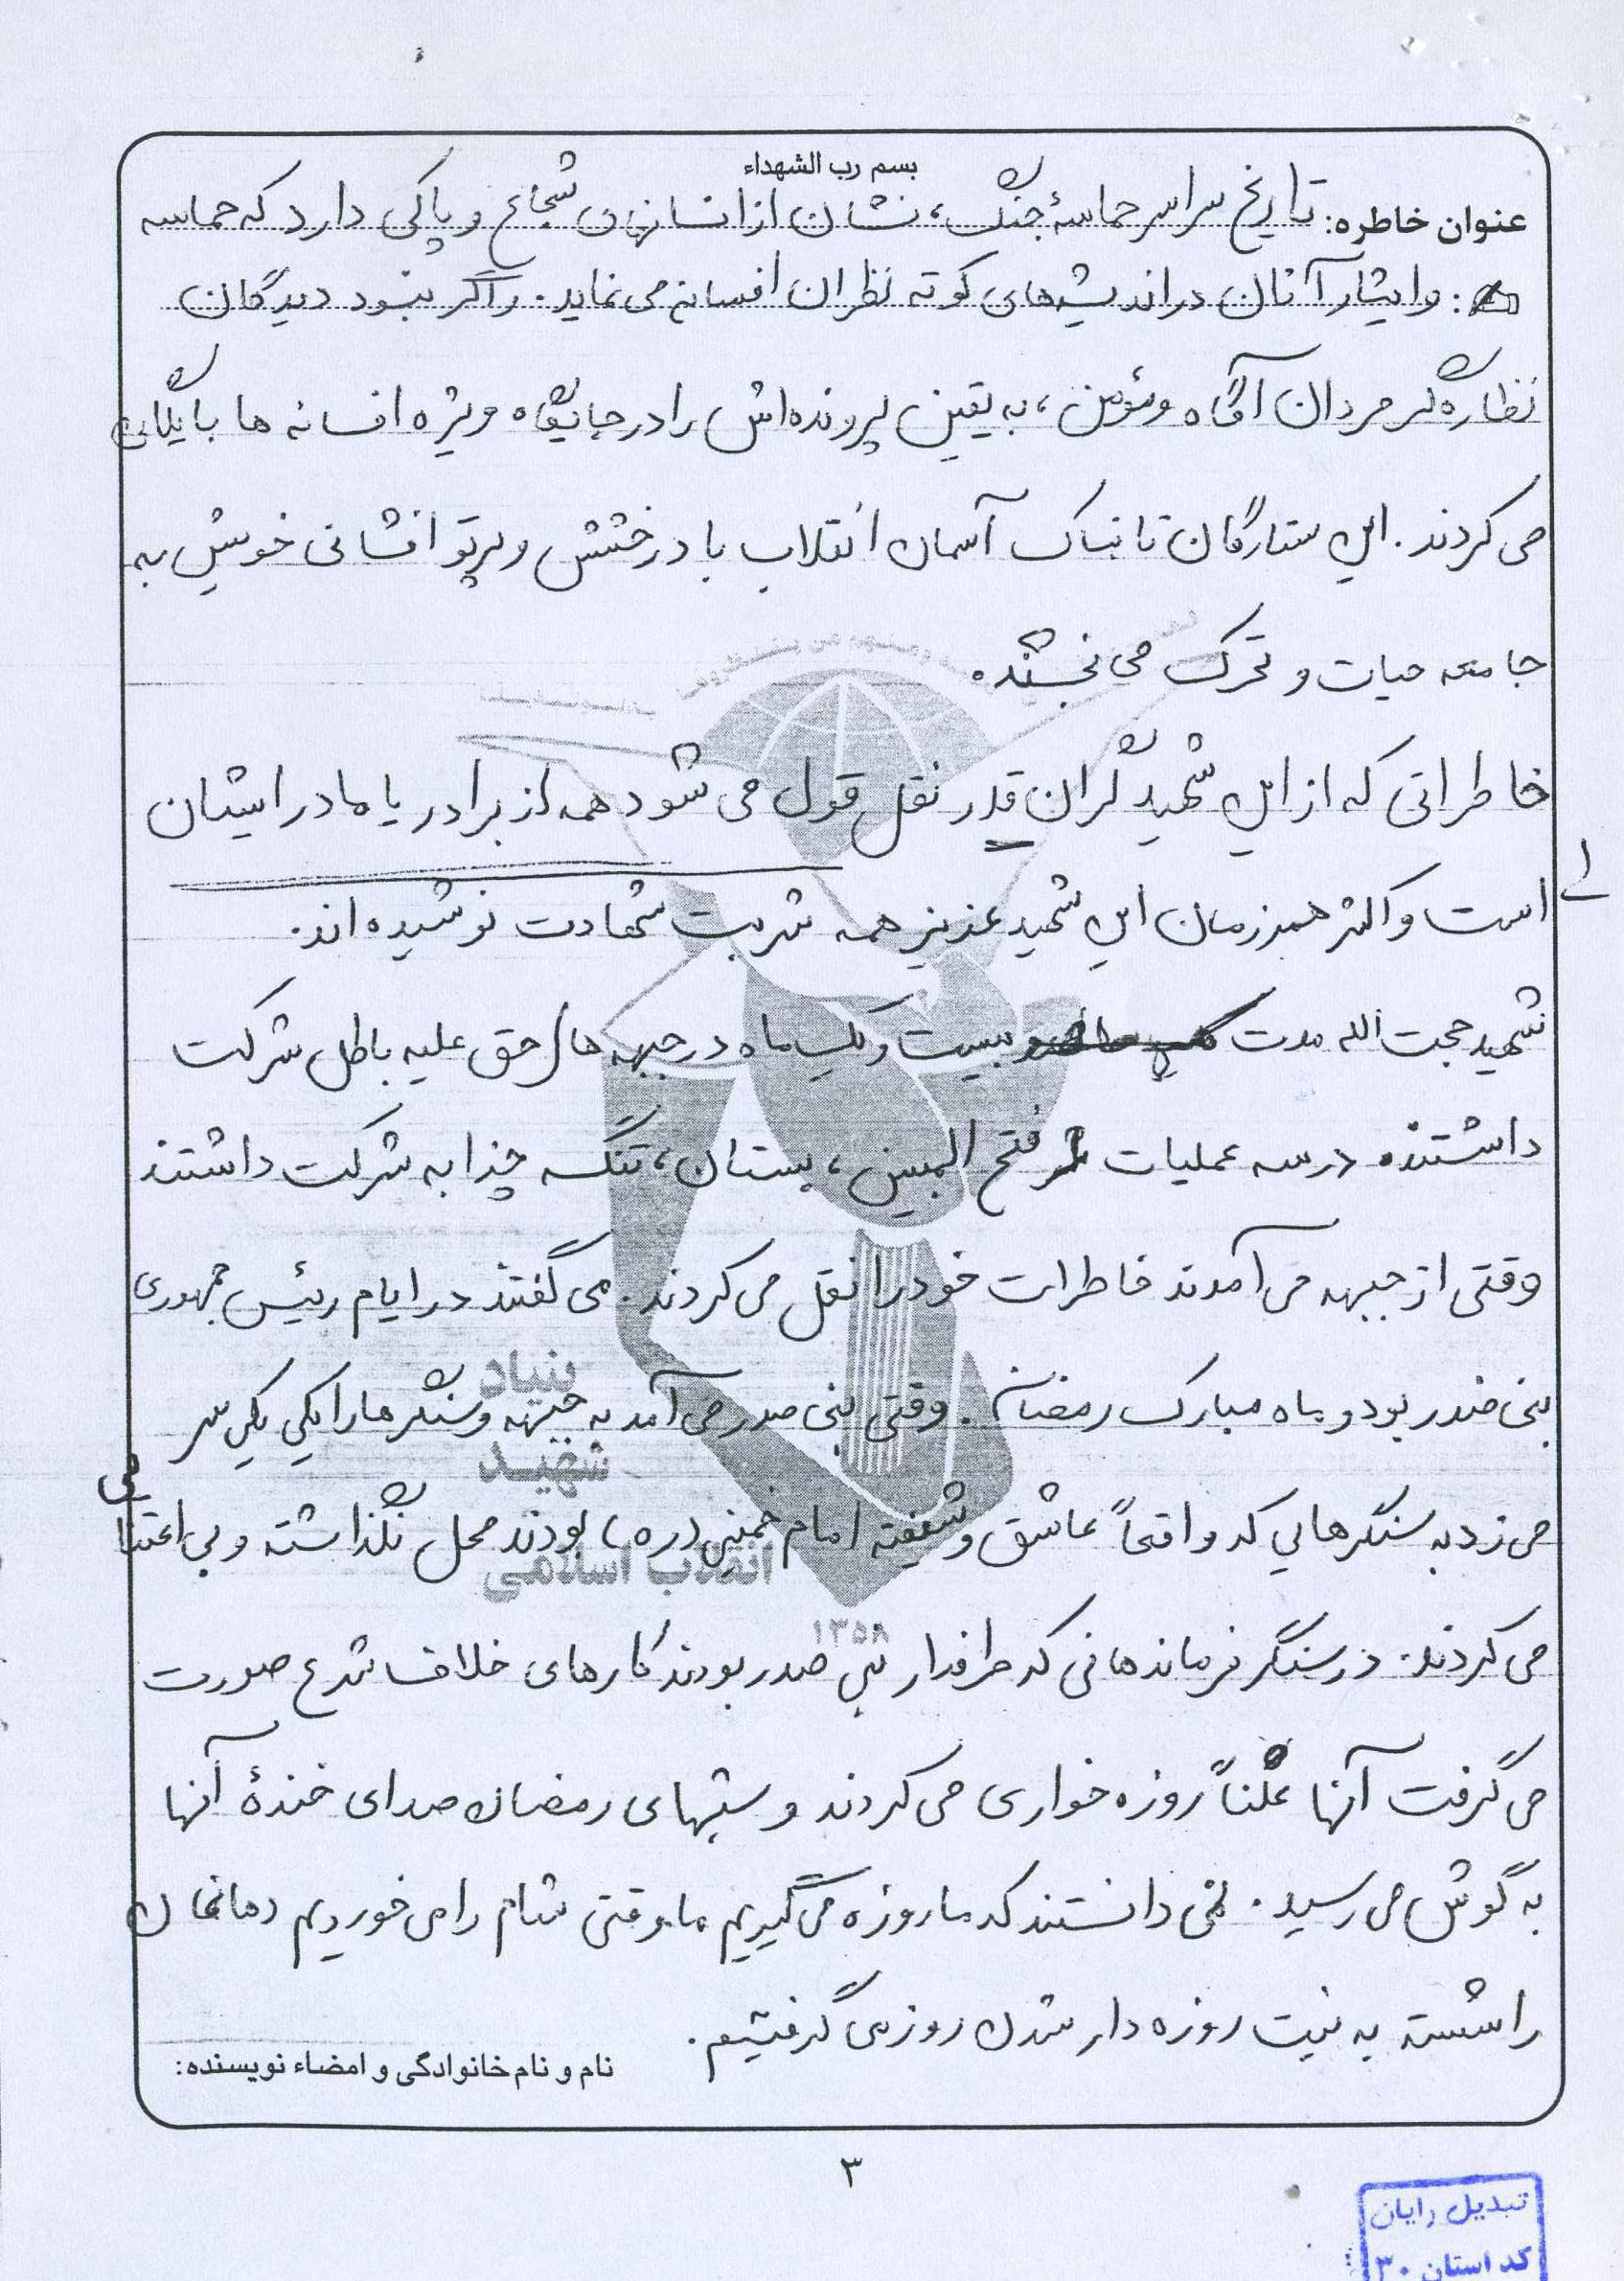 بسم رب الشهداء
عنوان خاطره: تاریخ سراسر حماسهٔ جنگ، نشان از انسانهای شجاع و پاکی دارد که حماسه
و ایثار آنان در اندیشه‌های کوته نظران افسانه می نماید. و اگر نبود دیدگان
نظاره گر مردان آگاه و مؤمن، به یقین پرونده‌اش را در جایگاه ویژه افسانه ها بایگانی
می کردند. این ستارگان تابناک آسمان انقلاب با درخشش و پرتو افشانی خویش به
جامعه حیات و تحرک می بخشند.
خاطراتی که از این شهید گران قدر نقل قول می شود همه از برادر یا مادر ایشان
است و اکثر همرزمان این شهید عزیز همه شربت شهادت نوشیده اند.
شهید حجت الله مدت بیست و یک ماه در جبهه های حق علیه باطل شرکت
داشتند. در سه عملیات فتح المبین، بستان، تنگه چذابه شرکت داشتند
وقتی از جبهه می آمدند خاطرات خود را نقل می کردند. می گفتند در ایام رئیس جمهوری
بنی صدر بود و ماه مبارک رمضان. وقتی بنی صدر می آمد به جبهه و سنگرها را یکی یکی سر
می زد به سنگرهایی که واقعاً عاشق و شیفته امام خمینی (ره) بودند محل نگذاشته و بی اعتنایی
می کردند. در سنگر فرمانده‌هانی که طرفدار بنی صدر بودند کارهای خلاف شرع صورت
می گرفت آنها علناً روزه خواری می کردند و شبهای رمضان صدای خندهٔ آنها
به گوش می رسید. نمی دانستند که ما روزه می گیریم ما وقتی شام را می خوردیم دهانمان
را شسته به نیت روزه دار شدن روزه می گرفتیم.
نام و نام خانوادگی و امضاء نویسنده:
بنیاد
شهید
انقلاب اسلامی
۱۳۵۸
۳
تبدیل رایان
کد استان ۳۰